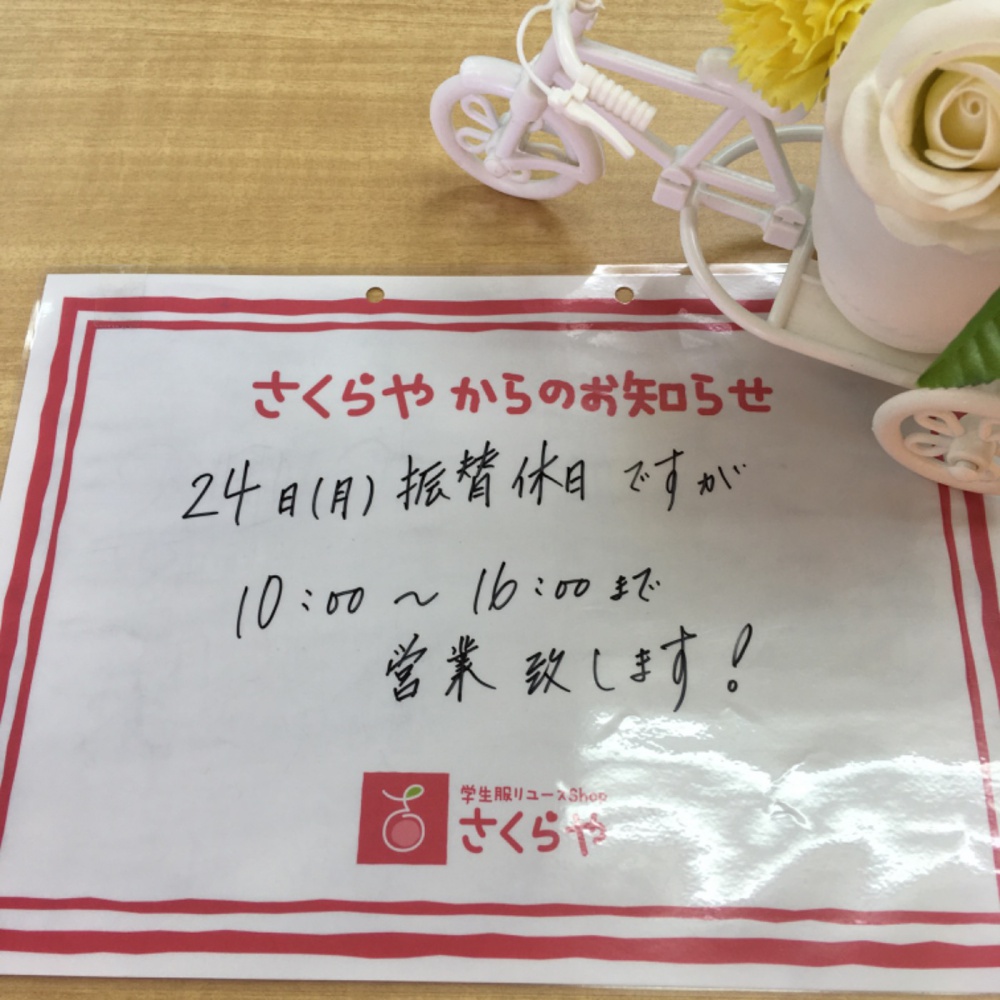 さくらや からのお知らせ
24日(月)振替休日ですが
10:00～16:00まで
営業致します!
学生服リユースShop
さくらや